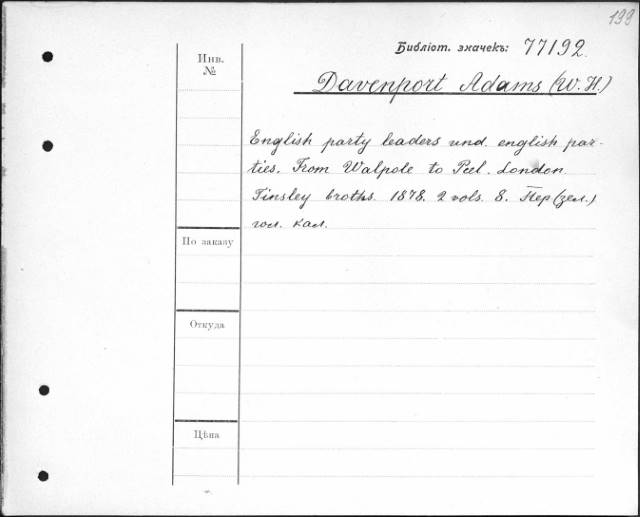 199
Библіот. значекъ: 77192.
Инв.
№
Davenport Adams (W. H.)
English party leaders und. english par-
ties. From Walpole to Peel. London
Tinsley broths. 1878. 2 vols. 8. Пер (зел.)
гол. кал.
По заказу
Откуда
Цѣна